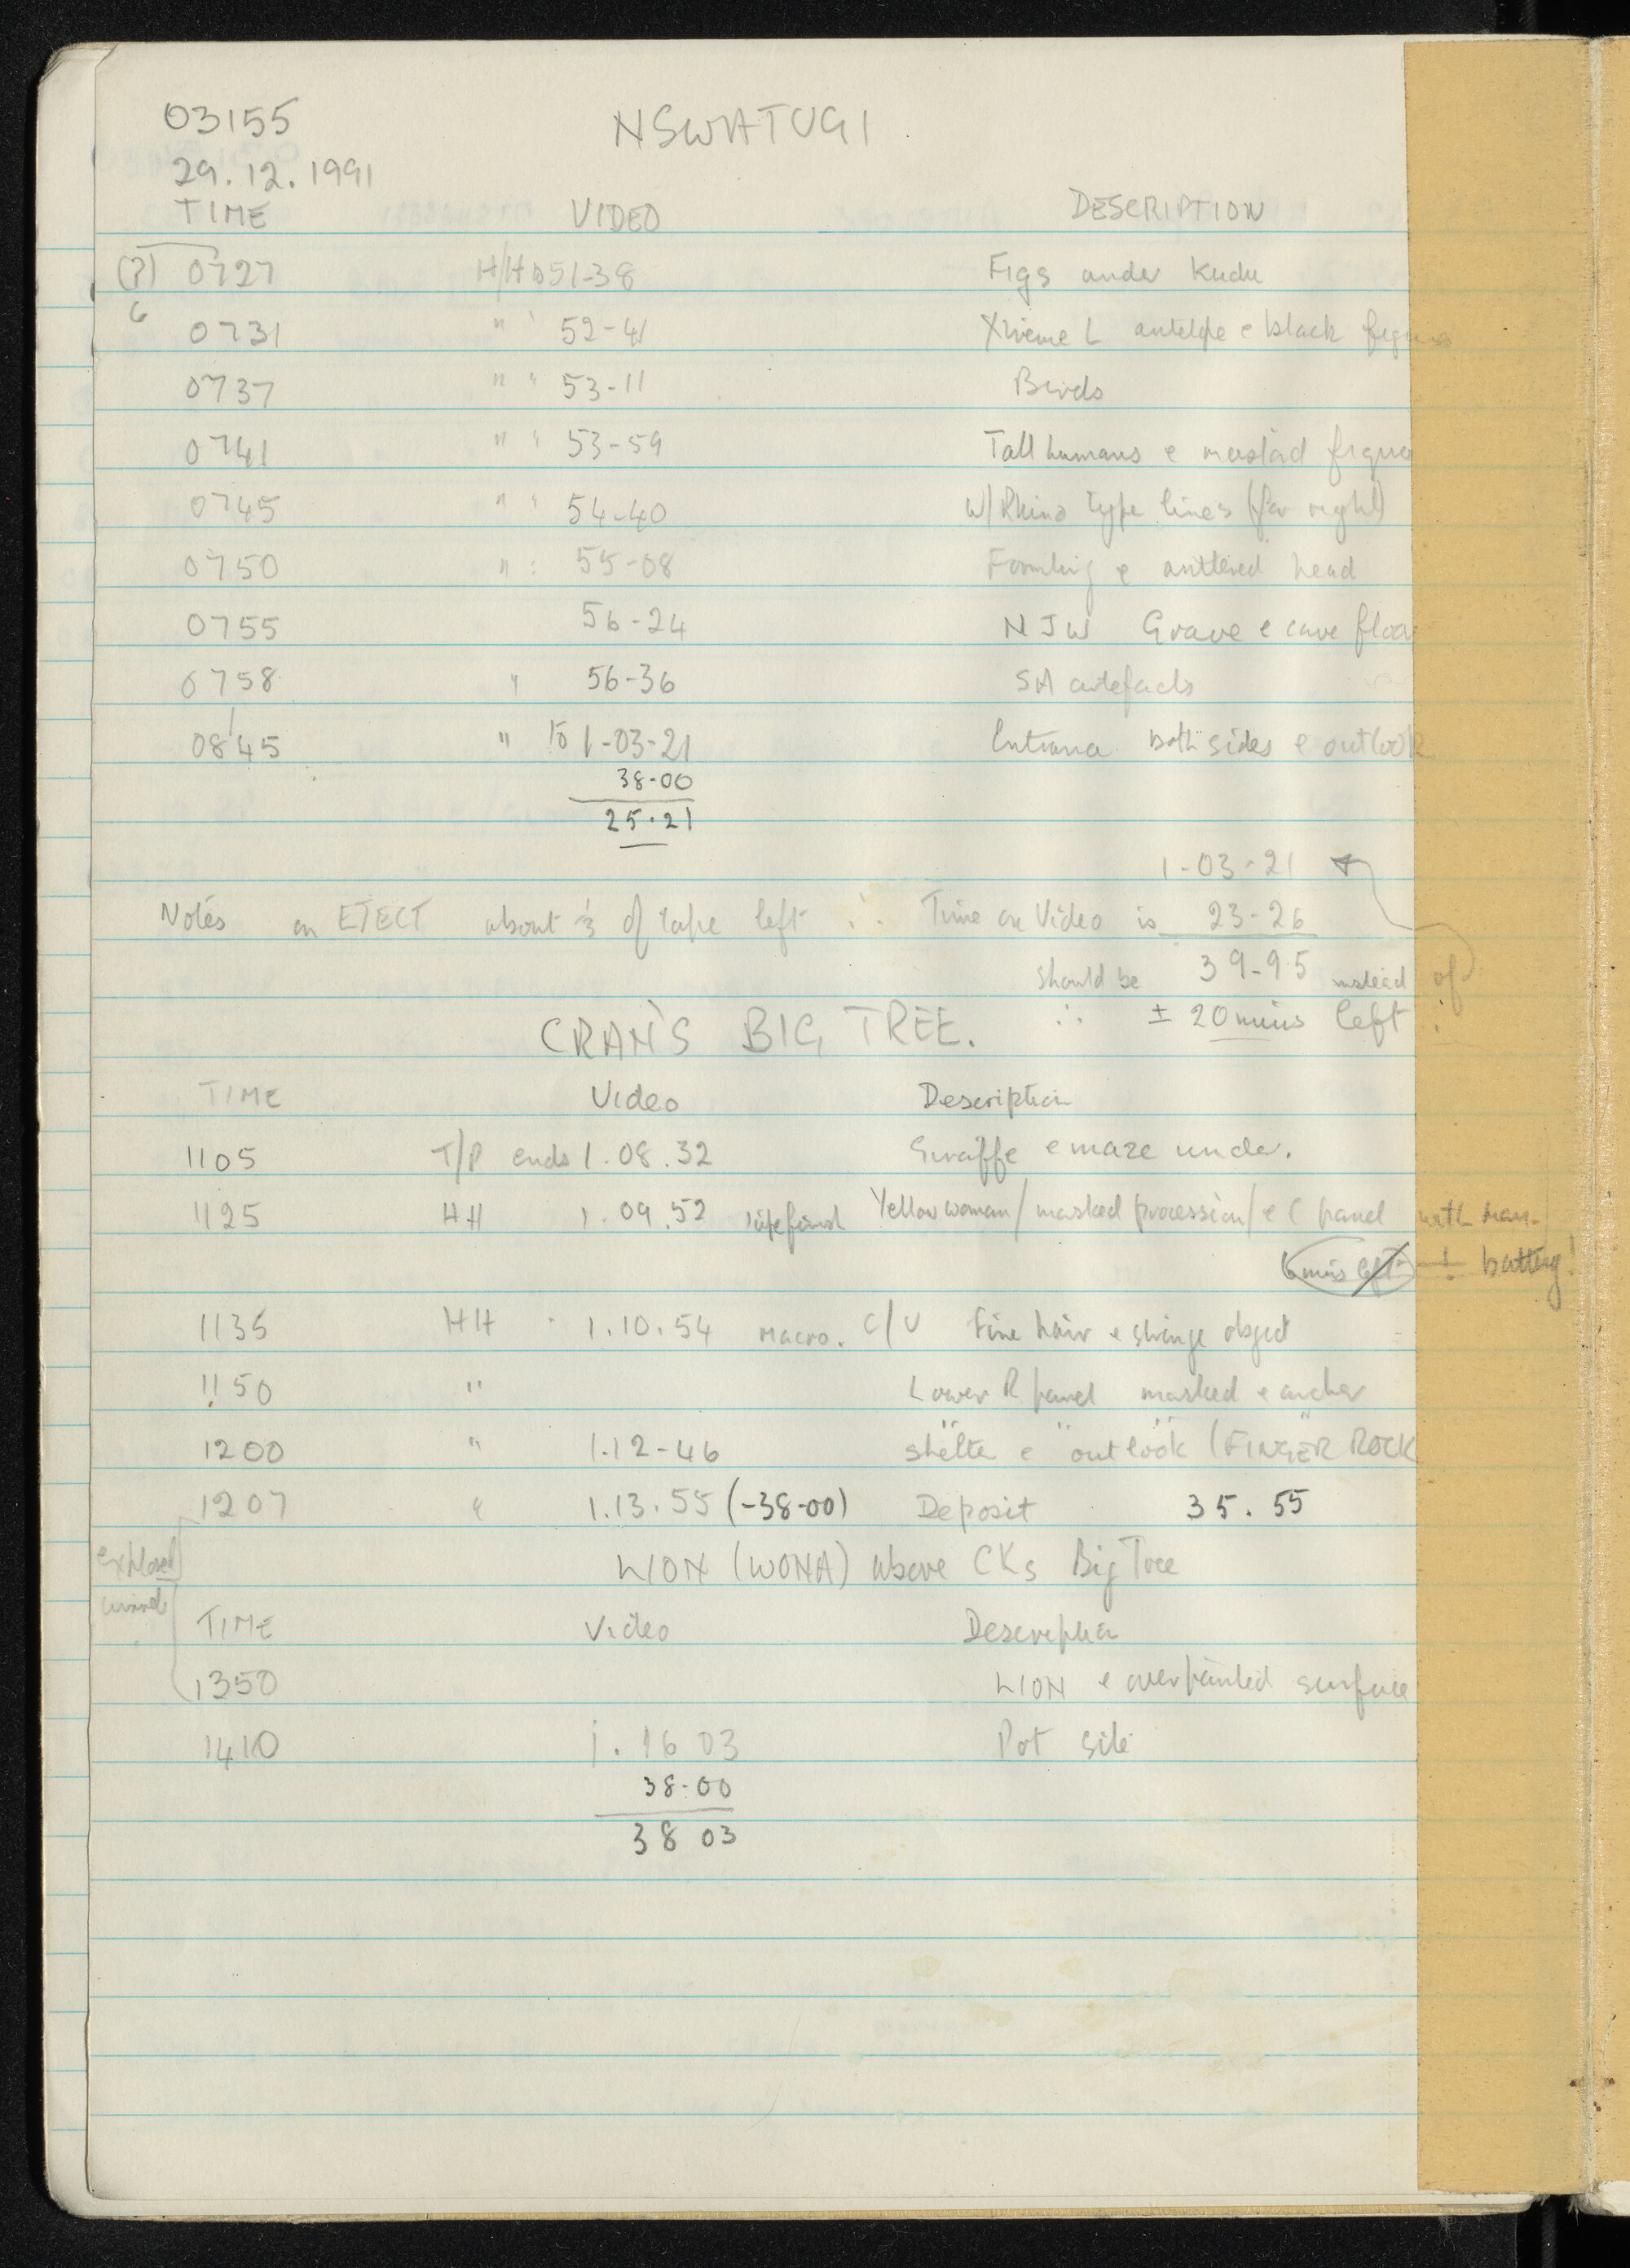 03155
NSWATUGI
29.12.1991
TIME VIDEO DESCRIPTION
(?) 0727 H/H 51-38 Figs under Kudu
6 0731 " " 52-41 Xtreme L antelope e black figures
0737 " " 53-11 Birds
0741 " " 53-59 Tall humans e figure
0745 " " 54-40 W/Rhino type lines (far right)
0750 " : 55-08 Formling e antlered head
0755 56-24 NJW Grave e cave floor
0758 " 56-36 SA artefacts
0845 " to 1-03-21 Entrance both sides e outlook
38-00
25.21
1-03-21
Notes on EJECT about ⅓ of tape left ∴ Time on Video is 23-26
should be 39-95 instead of
∴ ± 20 mins left
CRAN'S BIG TREE.
TIME Video Description
1105 T/P ends 1.08.32 Giraffe e maze under.
1125 HH 1.09.52 Yellow woman/ masked procession/ e C panel with man.
6 mins left battery!
1135 HH 1.10.54 macro. C/U Fine hair e object
1150 " Lower R panel masked e archer
1200 " 1.12-46 shelter e outlook (FINGER ROCK
1207 " 1.13.55 (-38-00) Deposit 35.55
explored
LION (WONA) above CKs Big Tree
TIME Video Description
1350 LION e overpainted surface
1410 1.16 03 Pot site
38-00
38 03